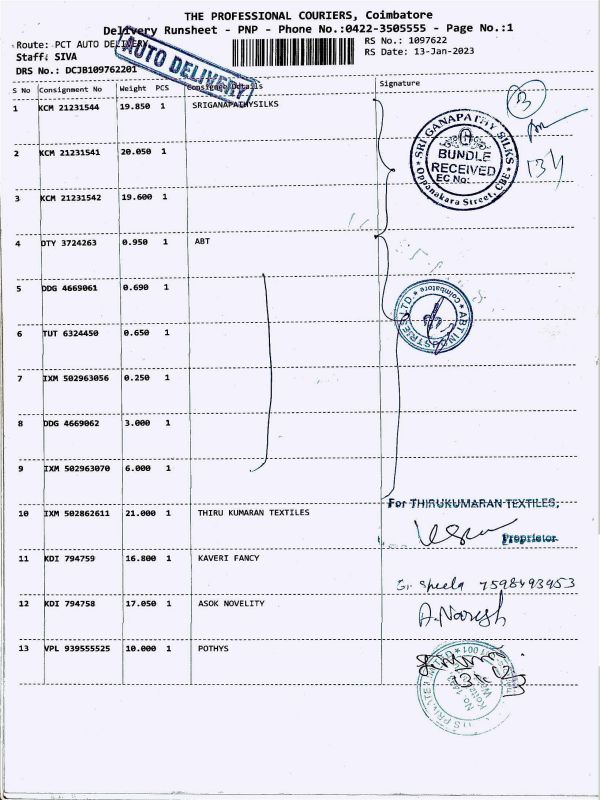 THE PROFESSIONAL COURIERS, Coimbatore
Delivery Runsheet - PNP - Phone No.:0422-3505555 - Page No.:1
Route: PCT AUTO DELIVERY
RS No.: 1097622
Staff: SIVA
RS Date: 13-Jan-2023
DRS No.: DCJB109762201
AUTO DELIVERY
S No Consignment No Weight PCS Consignee Details Signature
1 KCM 21231544 19.850 1 SRIGANAPATHYSILKS
2 KCM 21231541 20.050 1
3 KCM 21231542 19.600 1
SRI GANAPATHY SILKS
BUNDLE
RECEIVED
EC No:
Oppanakara Street, CBE
3
4 DTY 3724263 0.950 1 ABT
5 DDG 4669061 0.690 1
6 TUT 6324450 0.650 1
7 IXM 502963056 0.250 1
8 DDG 4669062 3.000 1
9 IXM 502963070 6.000 1
ABT INDUSTRIES LTD.
Coimbatore
10 IXM 502862611 21.000 1 THIRU KUMARAN TEXTILES
For THIRUKUMARAN TEXTILES,
Proprietor
11 KDI 794759 16.800 1 KAVERI FANCY
Sheela 7598493953
12 KDI 794758 17.050 1 ASOK NOVELITY
A. Naresh
13 VPL 939555525 10.000 1 POTHYS